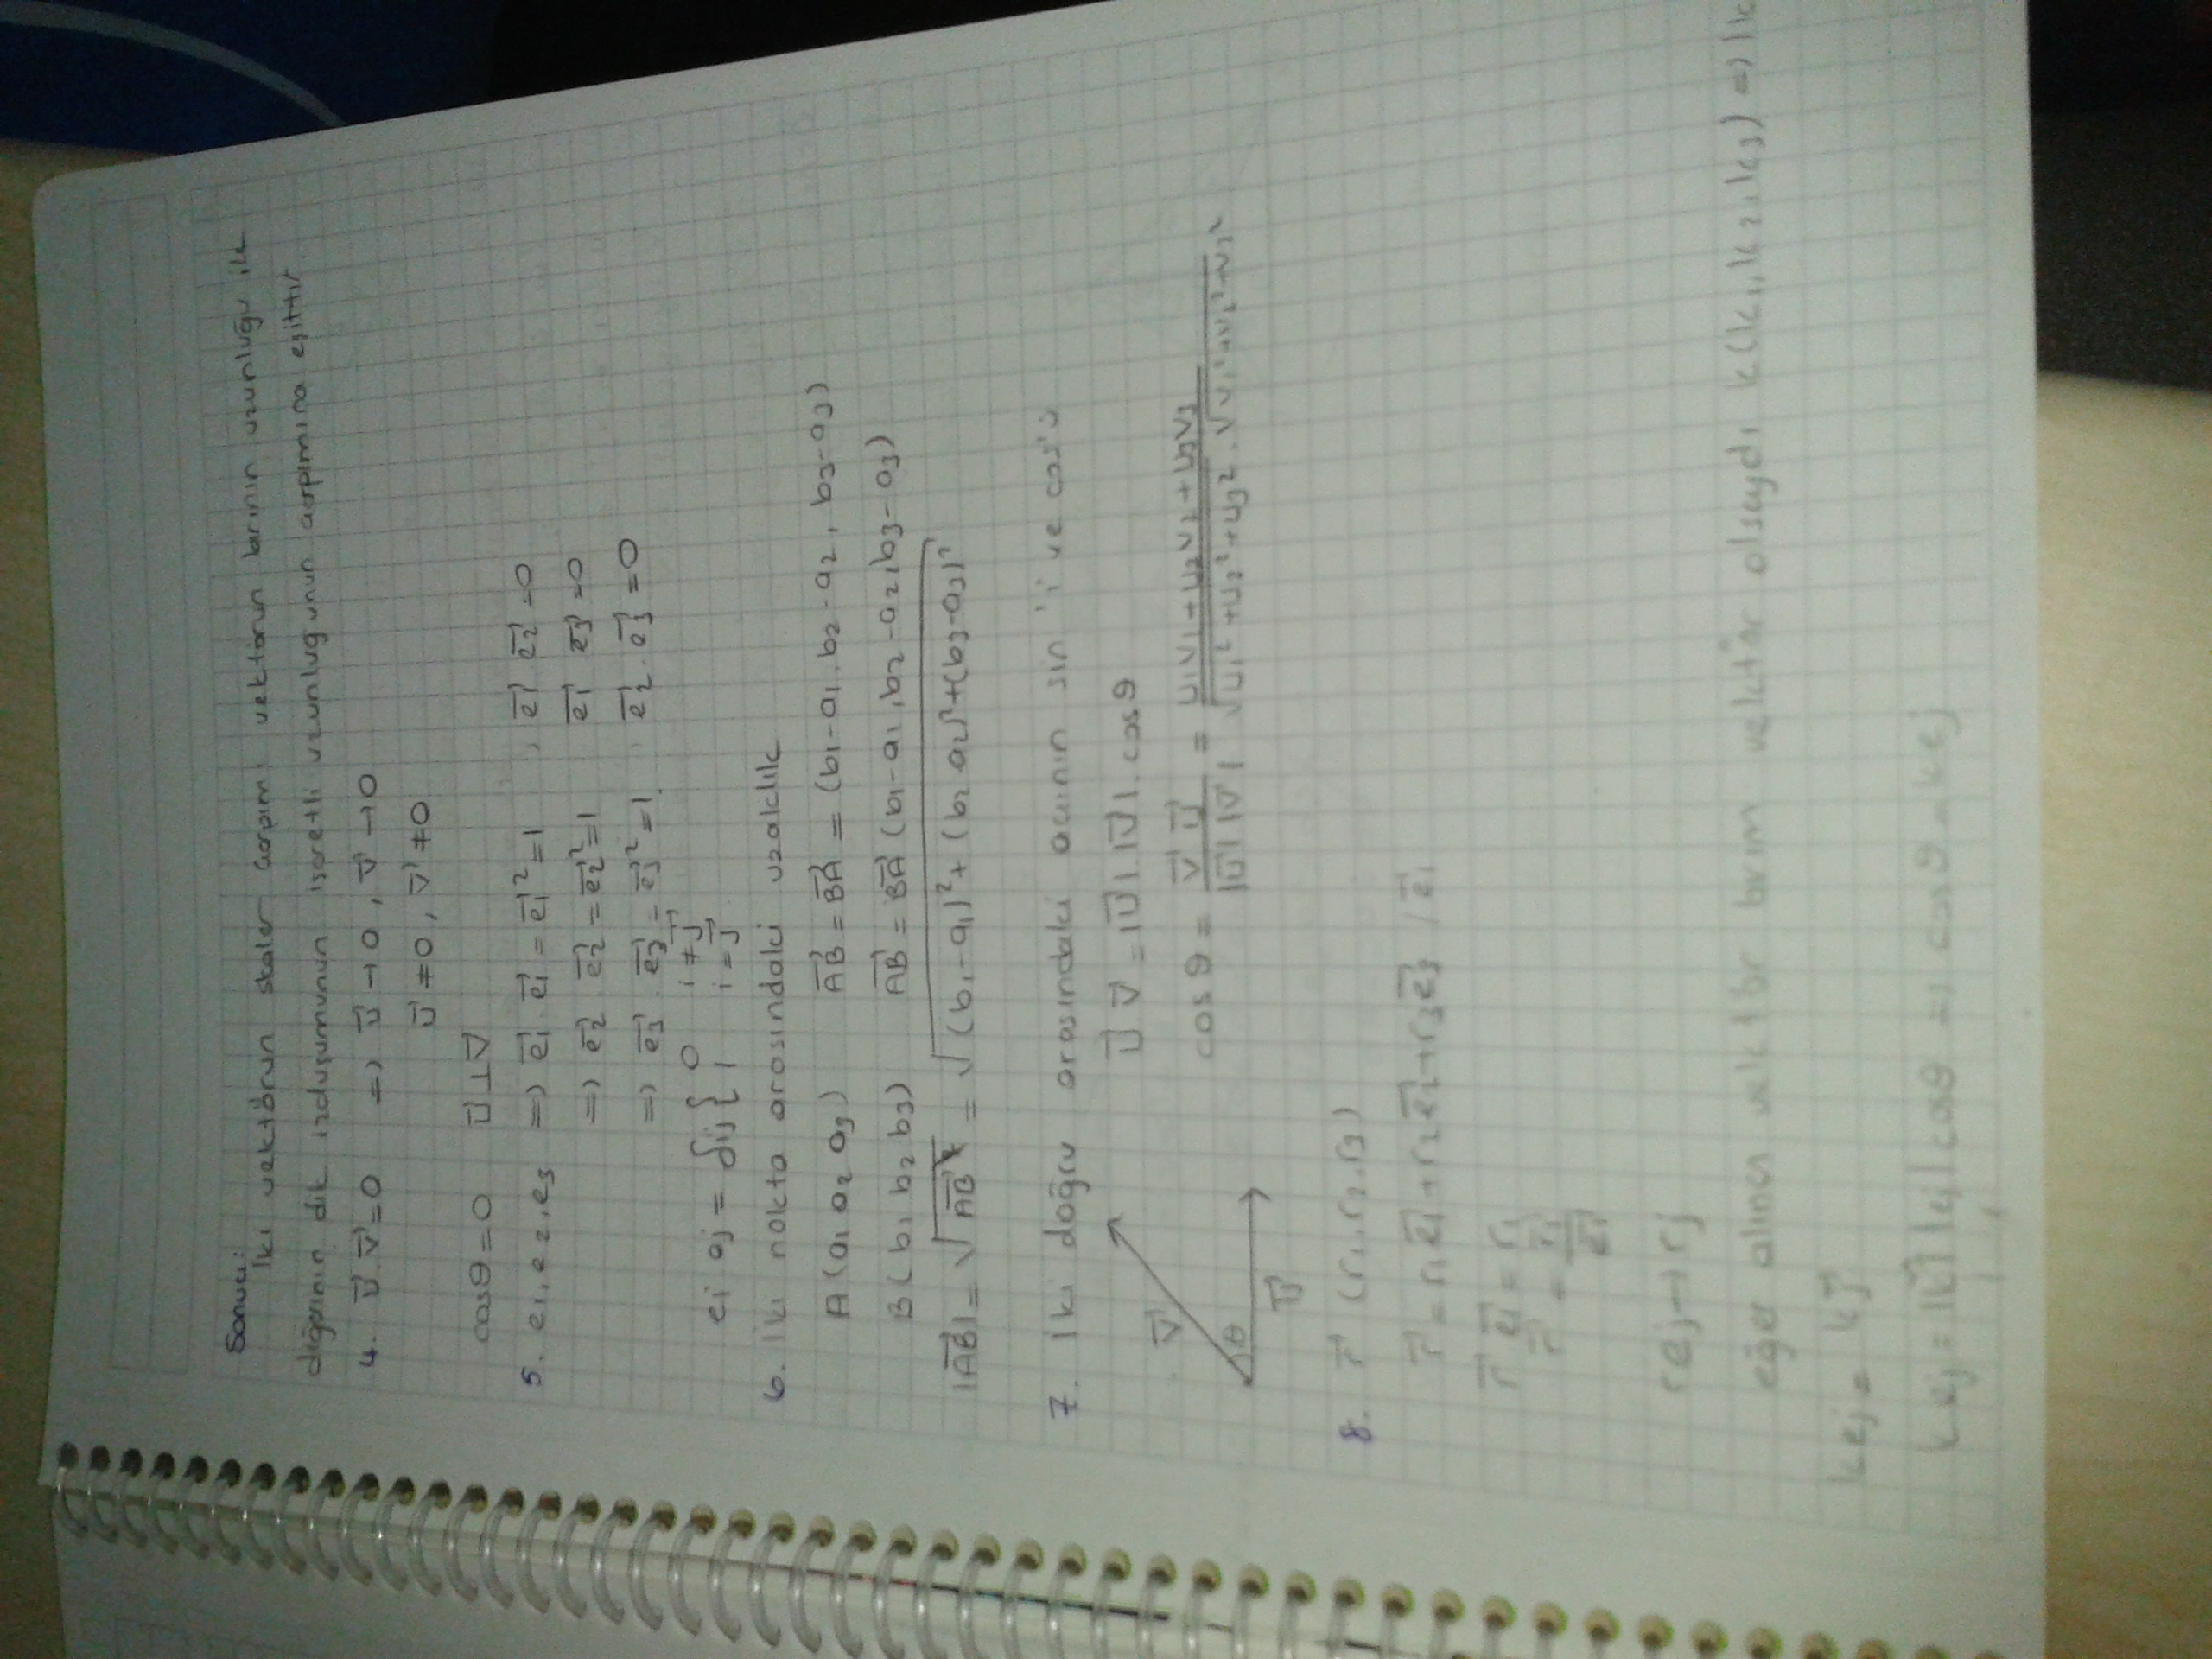 Sonuç:
İki vektörün skaler çarpımı vektörün birinin uzunluğu ile
diğerinin dik izdüşümünün işaretli uzunluğunun çarpımına eşittir.
4. u⃗ v⃗ = 0 => u⃗ → 0 , v⃗ → 0
u⃗ ≠ 0 , v⃗ ≠ 0
cosθ = 0 u⃗ ⊥ v⃗
5. e1, e2, e3 => e⃗1 . e⃗1 = e⃗1² = 1 , e⃗1 e⃗2 = 0
=> e⃗2 . e⃗2 = e⃗2² = 1 e⃗1 e⃗3 = 0
=> e⃗3 . e⃗3 = e⃗3² = 1 , e⃗2 . e⃗3 = 0
ei ej = δij { 0 i ≠ j⃗
1 i = j⃗
6. İki nokta arasındaki uzaklık
A(a1 a2 a3) AB⃗ = BA⃗ = (b1-a1, b2-a2, b3-a3)
B(b1 b2 b3) AB⃗ = BA⃗ (b1-a1, b2-a2, b3-a3)
|AB⃗| = √AB⃗² = √(b1-a1)² + (b2-a2)² + (b3-a3)²
7. İki doğru arasındaki açının sin'i ve cos'ü
u⃗ v⃗ = |u⃗| . |v⃗| . cosθ
v⃗
θ
u⃗
cosθ = v⃗ u⃗ / |u⃗| |v⃗| = u1v1 + u2v2 + u3v3 / √u1² + u2² + u3² . √v1² + v2² + v3²
8. r⃗ (r1, r2, r3)
r⃗ = r1e⃗1 + r2e⃗2 + r3e⃗3 / e⃗1
r⃗ e⃗1 = r1
rej → rj
eğer alınan vektör birim vektör olsaydı k(k1, k2, k3) => |k
kej = kj⃗
kej = |k⃗| |ej| cosθ => cosθ = kej